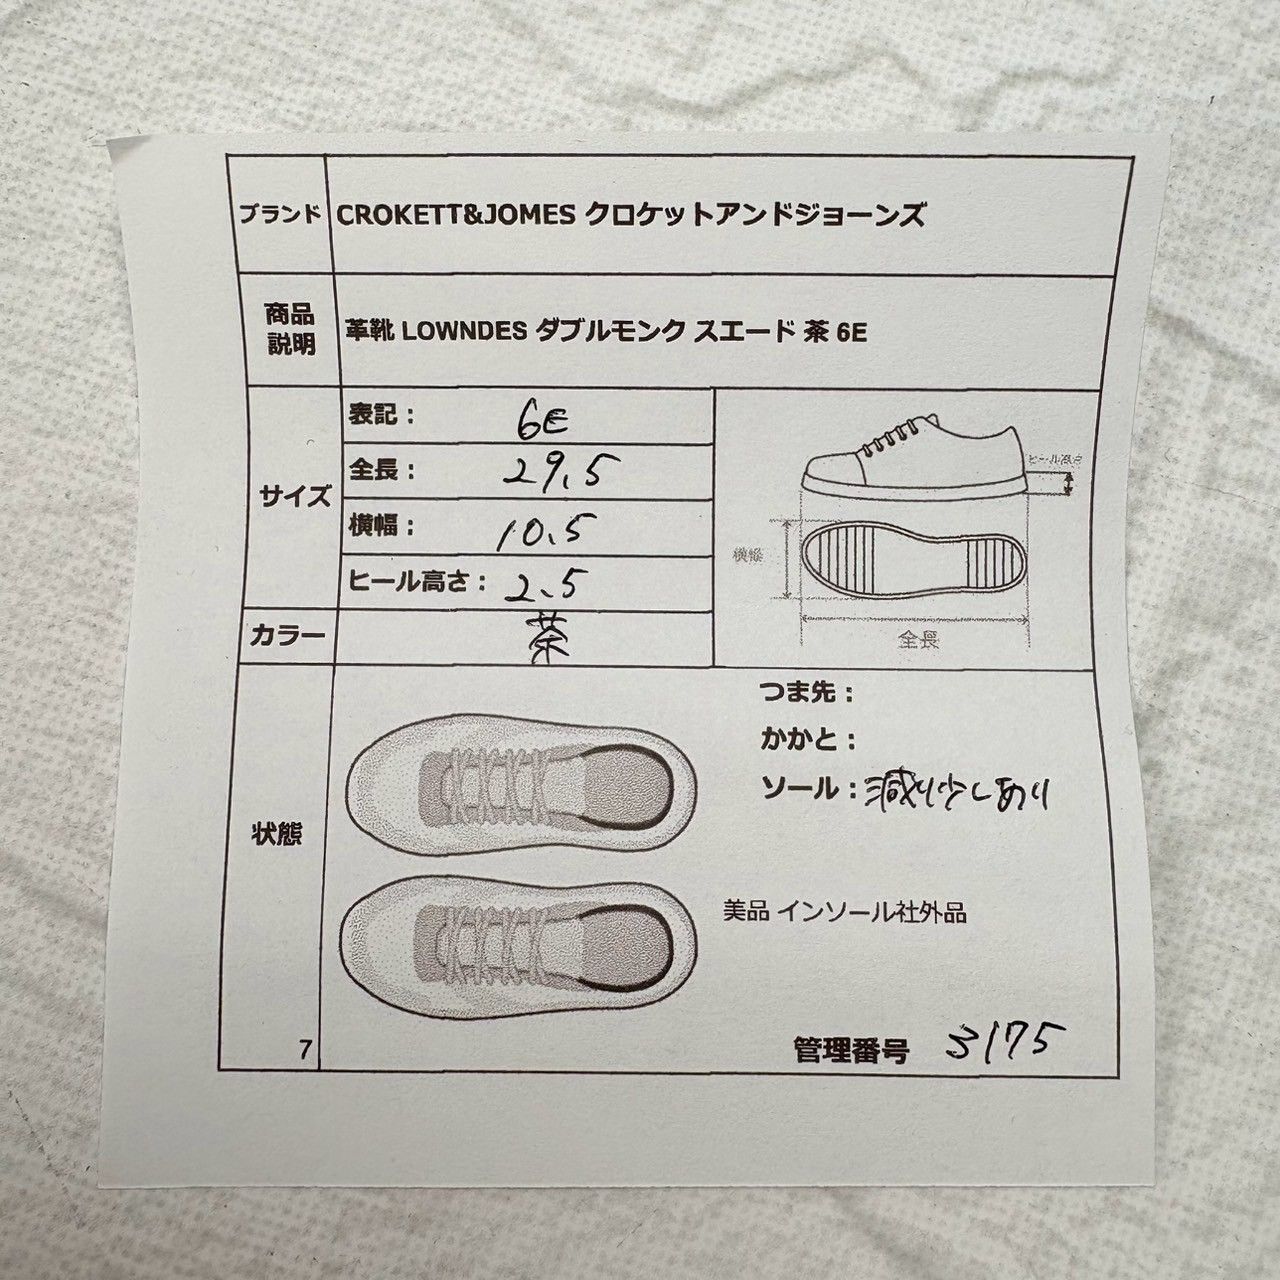 ブランド CROKETT&JOMES クロケットアンドジョーンズ
商品説明 革靴 LOWNDES ダブルモンク スエード 茶 6E
サイズ
表記： 6E
全長： 29.5
横幅： 10.5
ヒール高さ： 2.5
ヒール高さ
横幅
全長
カラー 茶
状態
つま先：
かかと：
ソール：減り少しあり
美品 インソール社外品
7
管理番号 3175